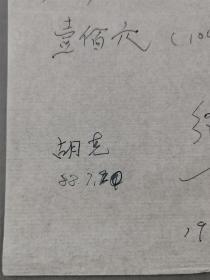 壹佰元 (10
胡克
88.7.20
19